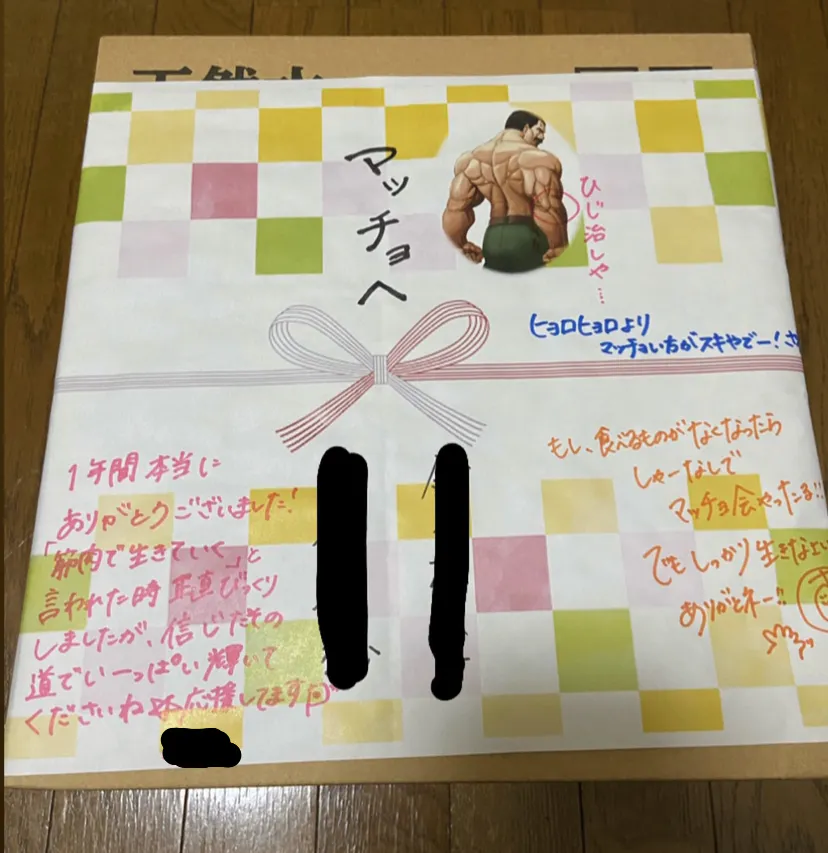 マッチョへ
ひじ治しや…
ヒョロヒョロより
マッチョい方がスキやでー!
1年間本当に
ありがとうございました!
「筋肉で生きていく」と
言われた時正直びっくり
しましたが、信じたその
道でいーっぱい輝いて
くださいね 応援してます
もし、食べるものがなくなったら
しゃーなしで
マッチョ会やったる!!
でもしっかり生きなさい
ありがとネー!!